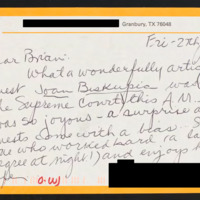 Granbury, TX 76048
Fri - 2th
ear Brian:
What a wonderfully artic
uest Joan Biskupic was
he Supreme Court) this A.M.
as so joyous - a surprise a
uests come with a bias. S
e who worked hard (a la
egree at night!) and enjoys h
fe.
O.W.